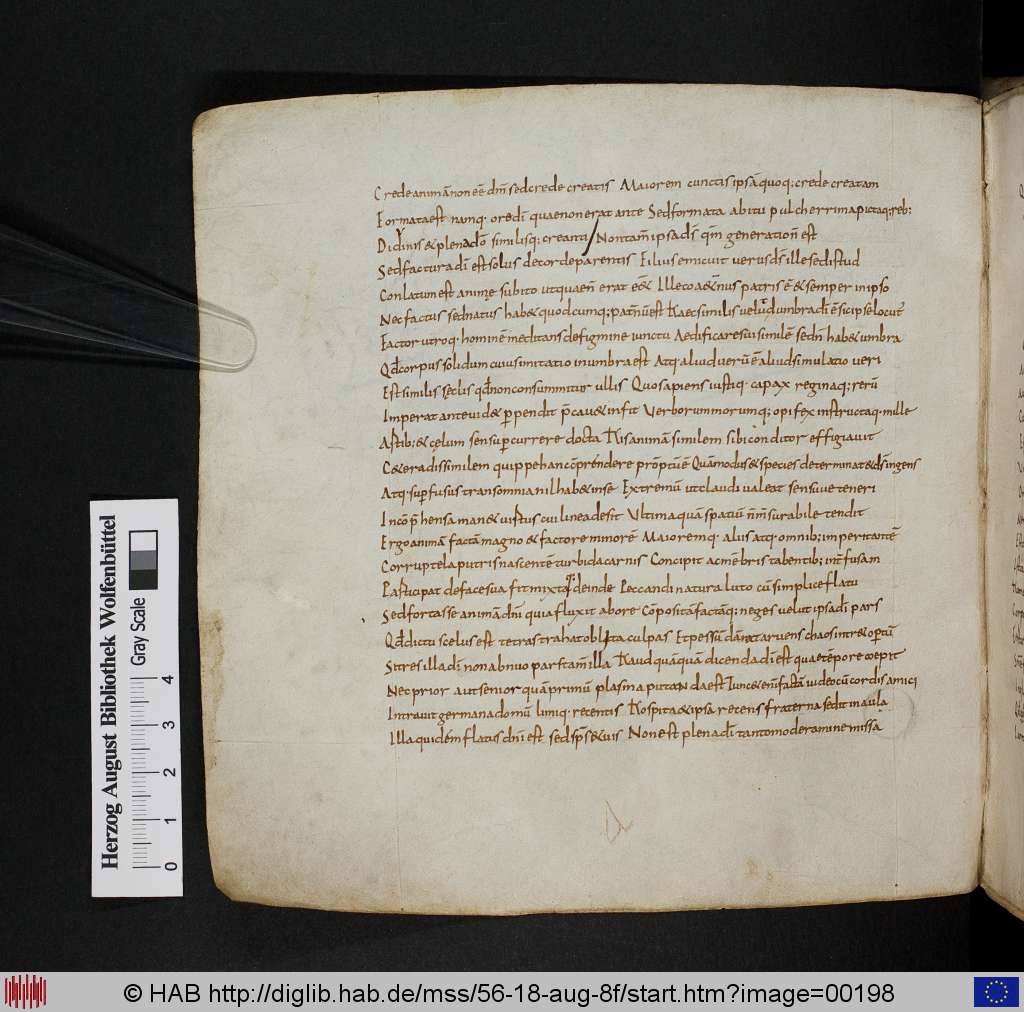 Crede animā non eē dm̄ sed crede creatis Maiorem cunctis ipsā quoq; crede creatam
Formata est namq. ore di quae non erat ante Sed formata abitu pulcherrima pictaq; reb;
Diuinis & plena dō similisq; creanti / Non tam̄ ipsa ds̄ qm̄ generation̄ est
Sed factura di est solus de corde parentis Filius emicuit uerus ds̄ ille sed istud
Conlatum est animę subito ut quae n̄ erat eē& Ille coa&ernus patris ē & semper in ipso
Nec factus sed natus hab& quodcumq; patn̄ū est Haec similis uelud umbra di ē sic ipse locut̄
Factor utroq. hominē meditans de figmine iunctu Aedificare sui similē sed n̄ hab& umbra
Qd̄ corpus solidum cuius imitatio in umbra est Atq. aliud uerū ē aliud simulatio ueri
Est similis seclus qd̄ non consummitur ullis Quo sapiens iustiq. capax reginaq; rerū
Imperat anteuid& perpendit p̄cau& infit Verborum morumq; opifex instructaq. mille
Astib; & cęlum sensu percurrere docta His animā similem sibi conditor effigiauit
C&era dissimilem quippe hanc cōpréndere prōptū ē Quā modus & species determinat & ds̄ ingens
Atq. sup̄fusus trans omnia nil hab& in se Extremū ut claudi ualeat sensuue teneri
Incōp̄hensa man& uirtus cui linea desit Vltima quā spatiū n̄ m̄surabile tendit
Ergo animā factā magno & factore minorē Maioremq. aliis atq. omnib; imperitantē
Corruptela putris nascentē turbida carnis Concipit ac mēbris tabentib; int̄ fusam
Participat de face sua fit mixta deinde Peccandi natura luto cū simplice flatu
Sed fortasse animā dni quia fluxit ab ore Cōpositā factāq; neges uelut ipsa di pars
Qd̄ dictu scelus est tetras trahat oblita culpas Et pessū data ruens chaos intr& op̄tū
Sit res illa di non abnuo pars tam̄ illa Haud quā quā dicenda di est quae tēpore coepit
Nec prior aut senior quā primū plasma putanda est Tunc & enī factā iudeo cū cordis amici
Intrauit germana domū limiq. recentis Hospita & ipsa recens fraterna sedit in aula
Illa quidém flatus dn̄i est sed sp̄s & uis Non est plena di tanto moderamine missa
Herzog August Bibliothek Wolfenbüttel
Gray Scale
0 1 2 3 4
© HAB http://diglib.hab.de/mss/56-18-aug-8f/start.htm?image=00198